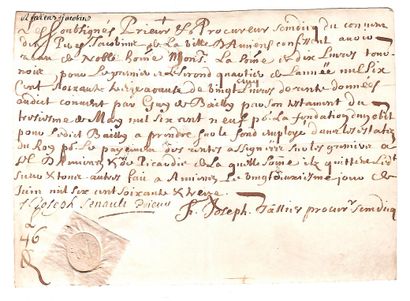 Les soubsignés Prieur et Procureur sendicq du convent
des Peres Jacobins de la ville d'Amiens confessent avoir
receu de Noble home Mons. La some de dix Livres tour-
nois pour le premier et second quartier de l'année mil six
Cent soixante treze a cause de vingt livres de rente données
audict convent par Guy de Bailly par son testament du
troisiesme de May mil six cent neuf
pour ledict Bailly a prendre sur le fond employé dans les estatz
du Roy po le payement des rentes assignées sur les greniers a
sel D'Amiens de Picardie de la quelle some
tous autres fait a Amiens le vingt iour de
Juin mil six cent soixante et treze
f. Joseph Senault Prieur
fr. Joseph Tallier procur. sendicq
2
46